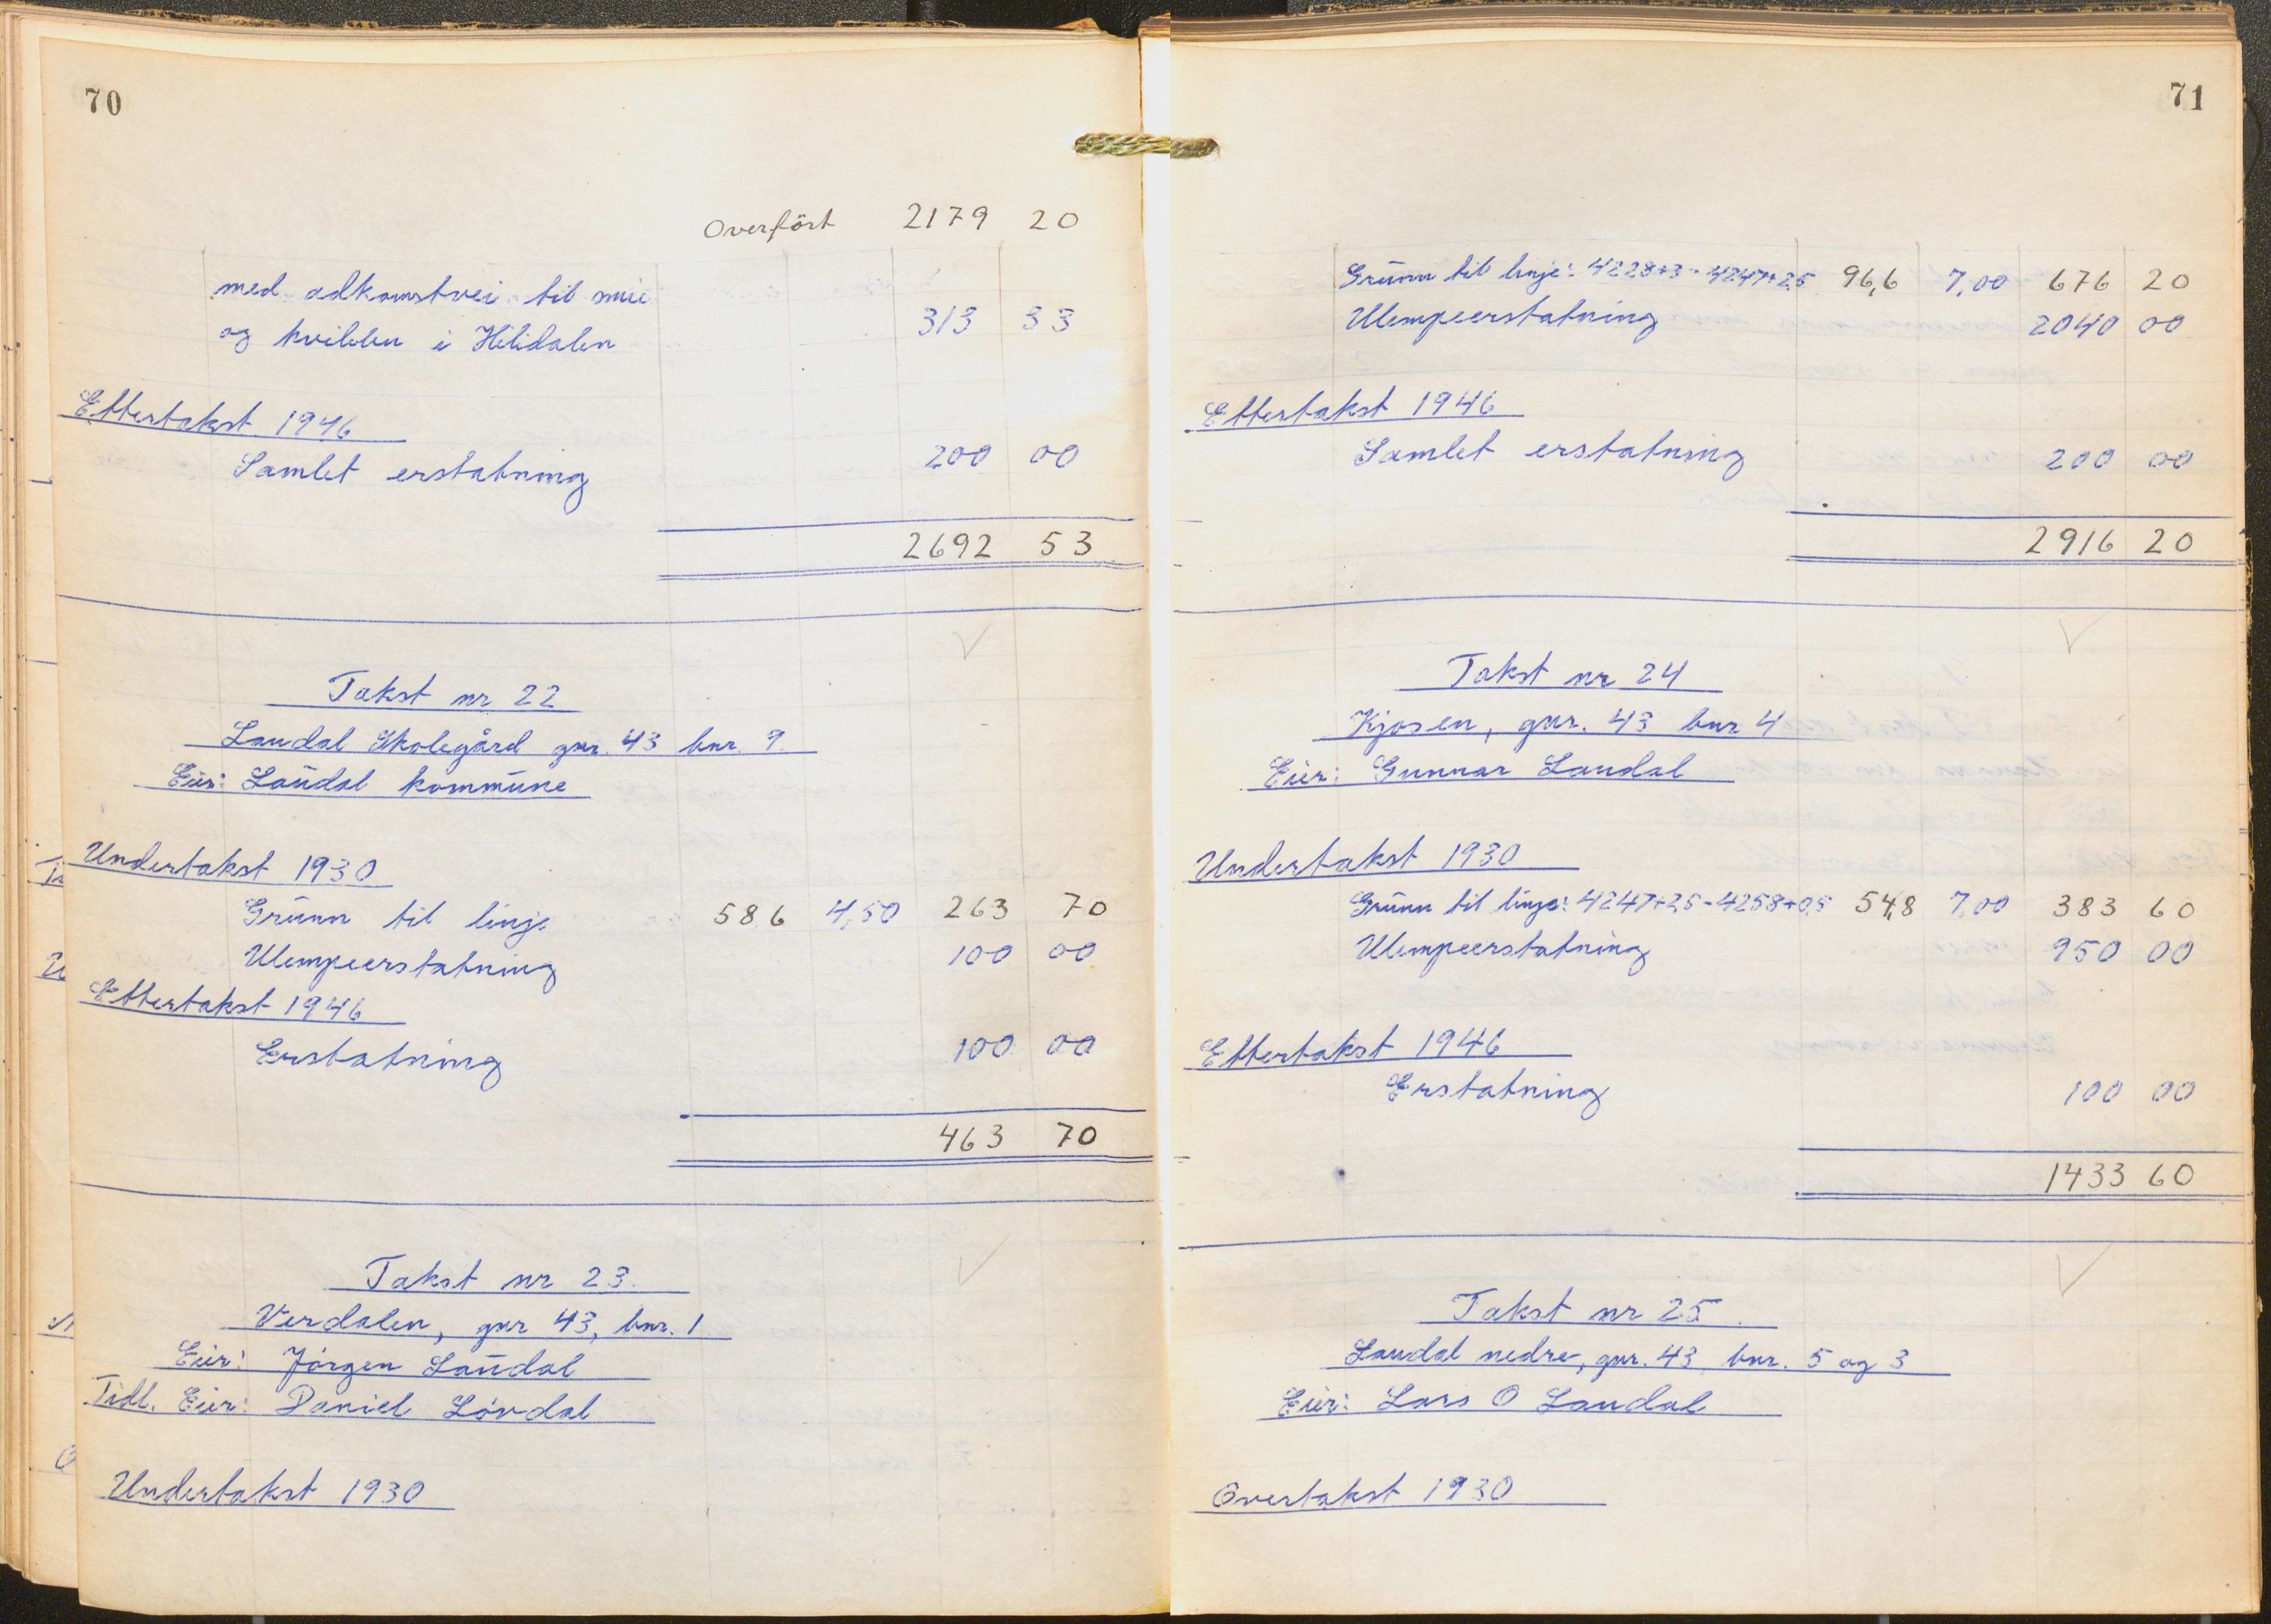 70
Overfört 2179 20
med adkomstvei til smie
og kvilen i Hilidalen 313 33
Ettertakst 1946
Samlet erstatning 200 00
2692 53
Takst nr 22
Laudal Skolegård gnr. 43 bnr. 9.
Eier: Laudal kommune
Undertakst 1930
Grunn til linje 586 4,50 263 70
Ulempeerstatning 100 00
Ettertakst 1946
Erstatning 100 00
463 70
Takst nr 23.
Verdalen, gnr 43, bnr. 1
Eier: Jörgen Laudal
Tidl. Eier: Daniel Lövdal
Undertakst 1930
71
Grunn til linje: 4228+3 - 4247+2,5 96,6 7,00 676 20
Ulempeerstatning 2040 00
Ettertakst 1946
Samlet erstatning 200 00
2916 20
Takst nr 24
Kjosen, gnr. 43 bnr 4
Eier: Gunnar Laudal
Undertakst 1930
Grunn til linje: 4247+2,5 - 4258+0,5 54,8 7,00 383 60
Ulempeerstatning 950 00
Ettertakst 1946
Erstatning 100 00
1433 60
Takst nr 25.
Laudal nedre, gnr. 43 bnr. 5 og 3
Eier: Lars O Laudal
Overtakst 1930